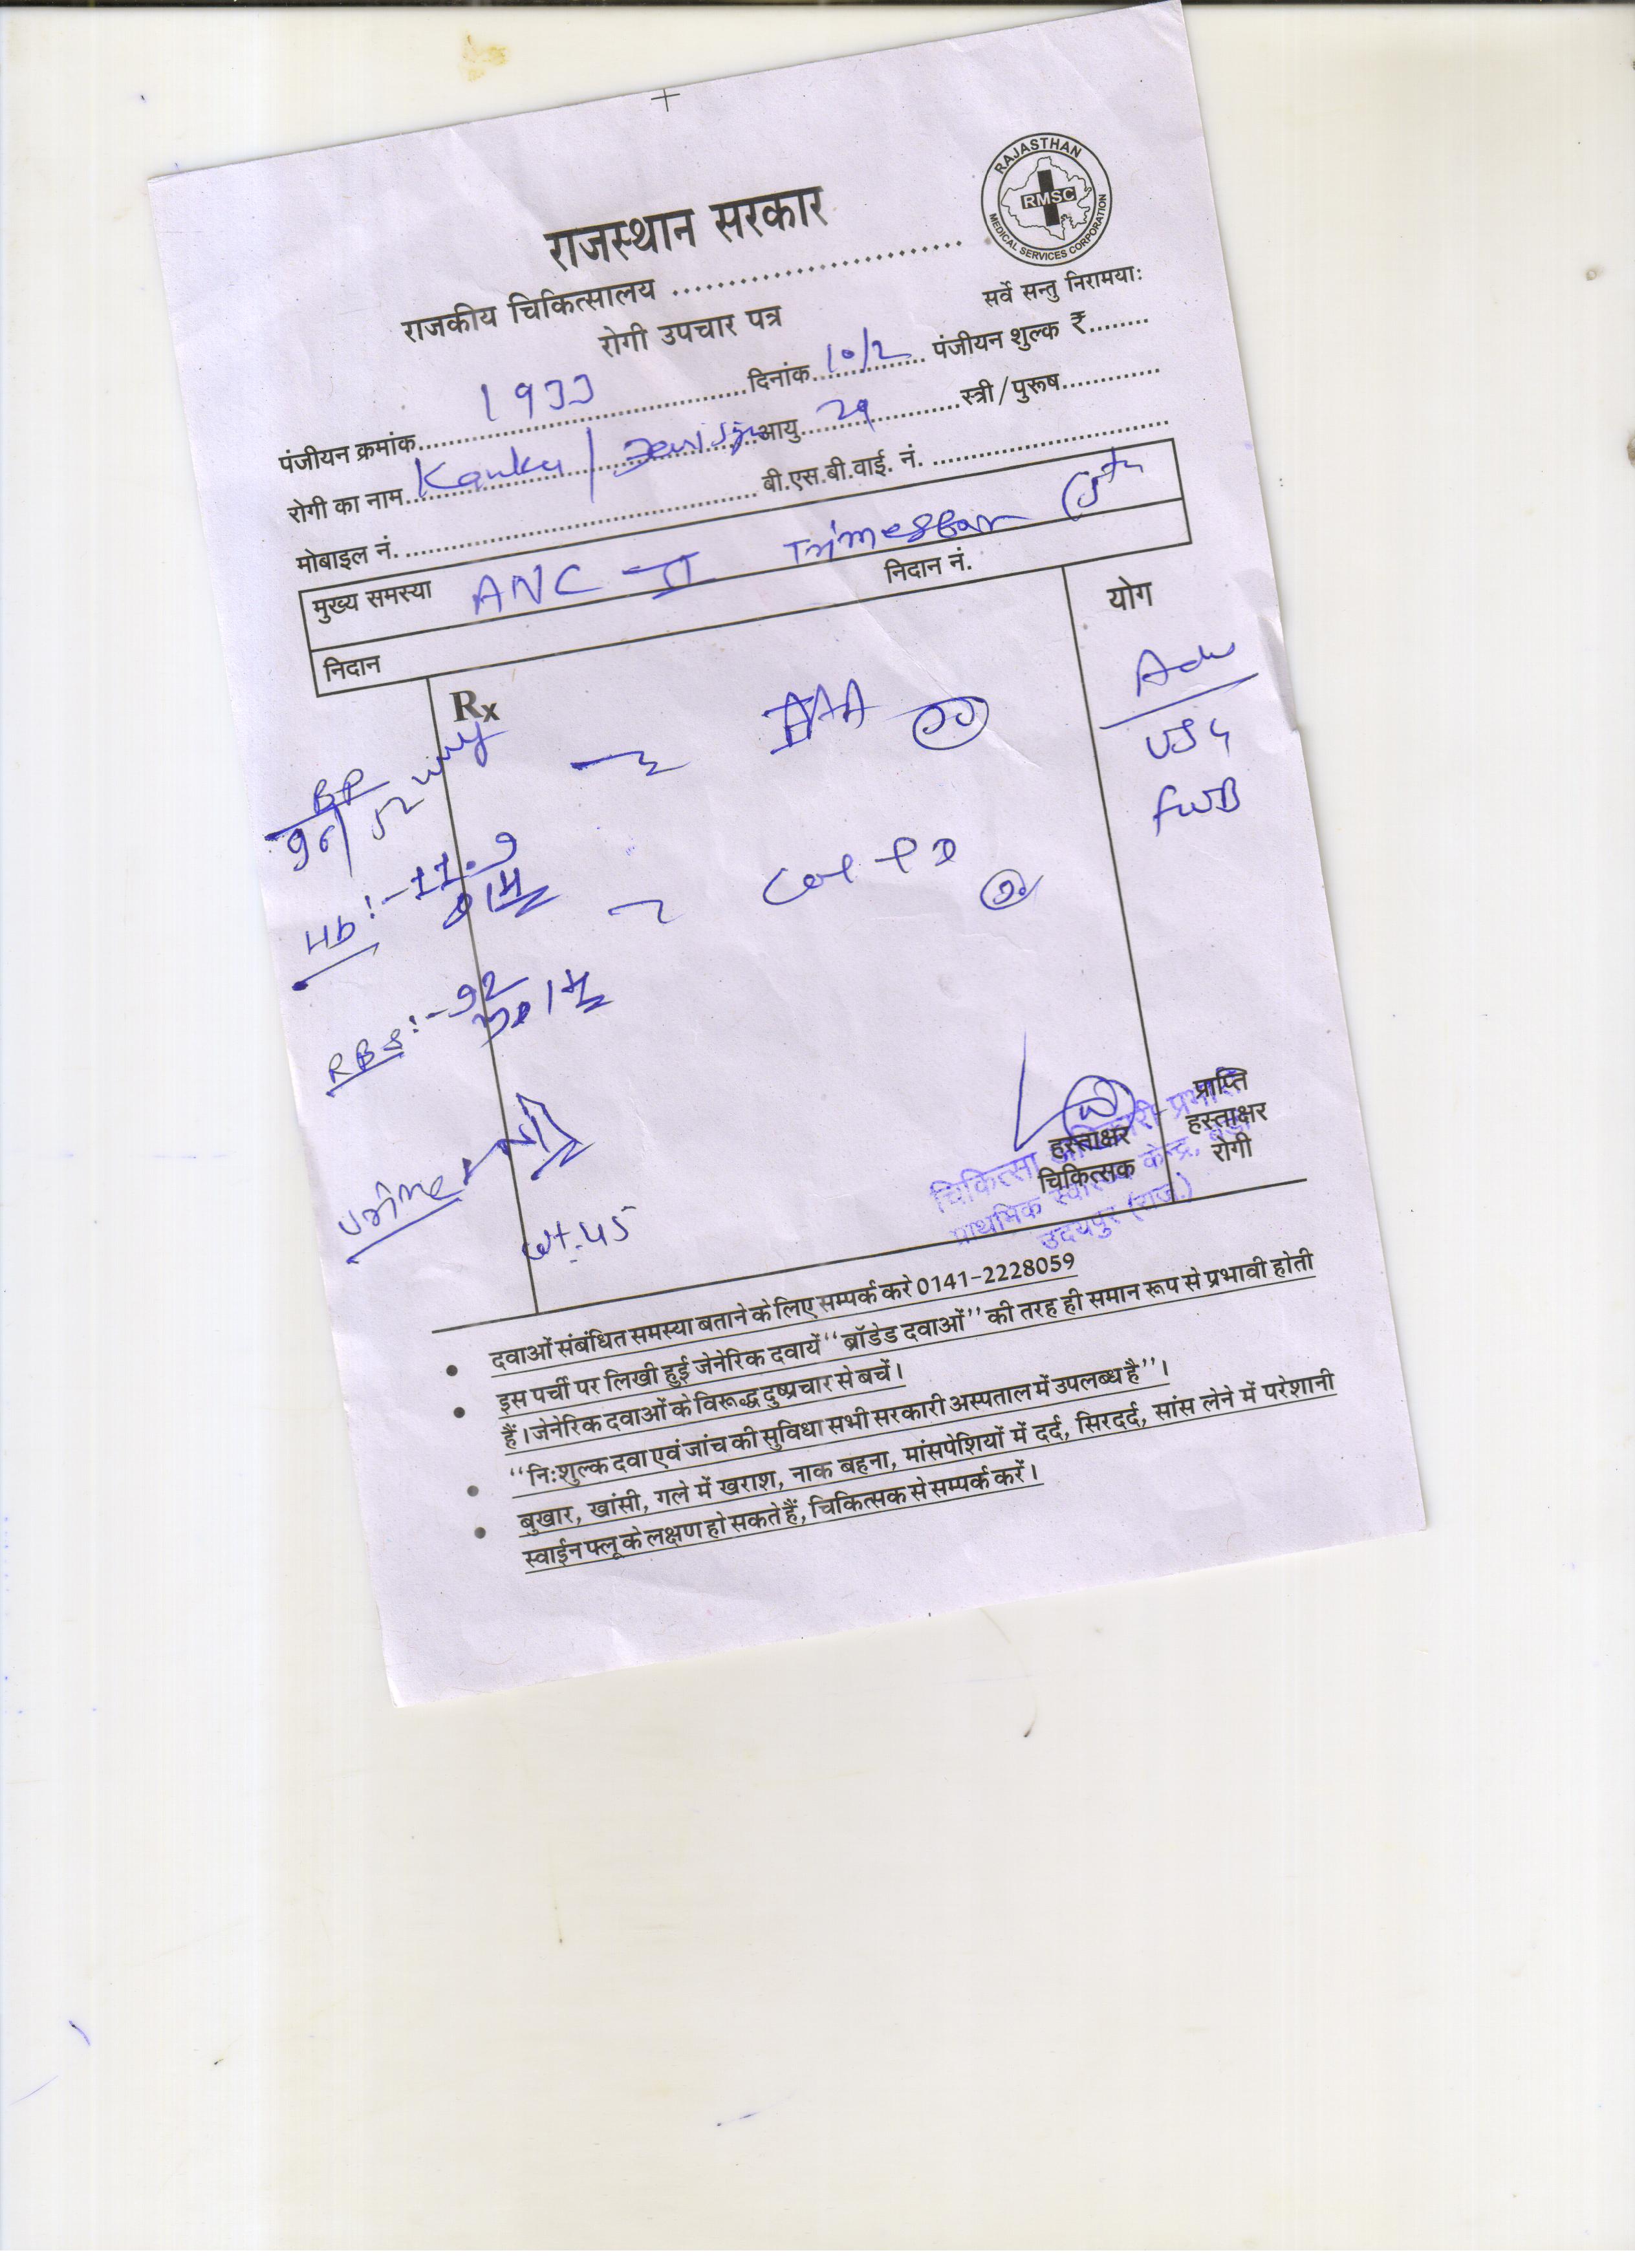 राजस्थान सरकार
RAJASTHAN
RMSC
MEDICAL SERVICES CORPORATION
राजकीय चिकित्सालय ..............................
सर्वे सन्तु निरामयाः
रोगी उपचार पत्र
पंजीयन क्रमांक 1933 दिनांक 10/2 पंजीयन शुल्क ₹
रोगी का नाम Kanku / आयु स्त्री/पुरूष
मोबाइल नं. बी.एस.बी.वाई. नं.
मुख्य समस्या ANC - II Trimestar
निदान निदान नं.
Rx
योग
Adv
USG
FWB
BP
Hb:- 11.9
RBS:- 92
Urine
wt. 45
हस्ताक्षर
चिकित्सक
प्राप्ति
हस्ताक्षर
रोगी
चिकित्सा अधिकारी प्रभारी
प्राथमिक स्वास्थ्य केन्द्र,
उदयपुर (राज.)
• दवाओं संबंधित समस्या बताने के लिए सम्पर्क करे 0141-2228059
• इस पर्ची पर लिखी हुई जेनेरिक दवायें "ब्रॉडेड दवाओं" की तरह ही समान रूप से प्रभावी होती
हैं। जेनेरिक दवाओं के विरूद्ध दुष्प्रचार से बचें।
• "निःशुल्क दवा एवं जांच की सुविधा सभी सरकारी अस्पताल में उपलब्ध है"।
• बुखार, खांसी, गले में खराश, नाक बहना, मांसपेशियों में दर्द, सिरदर्द, सांस लेने में परेशानी
स्वाईन फ्लू के लक्षण हो सकते हैं, चिकित्सक से सम्पर्क करें।